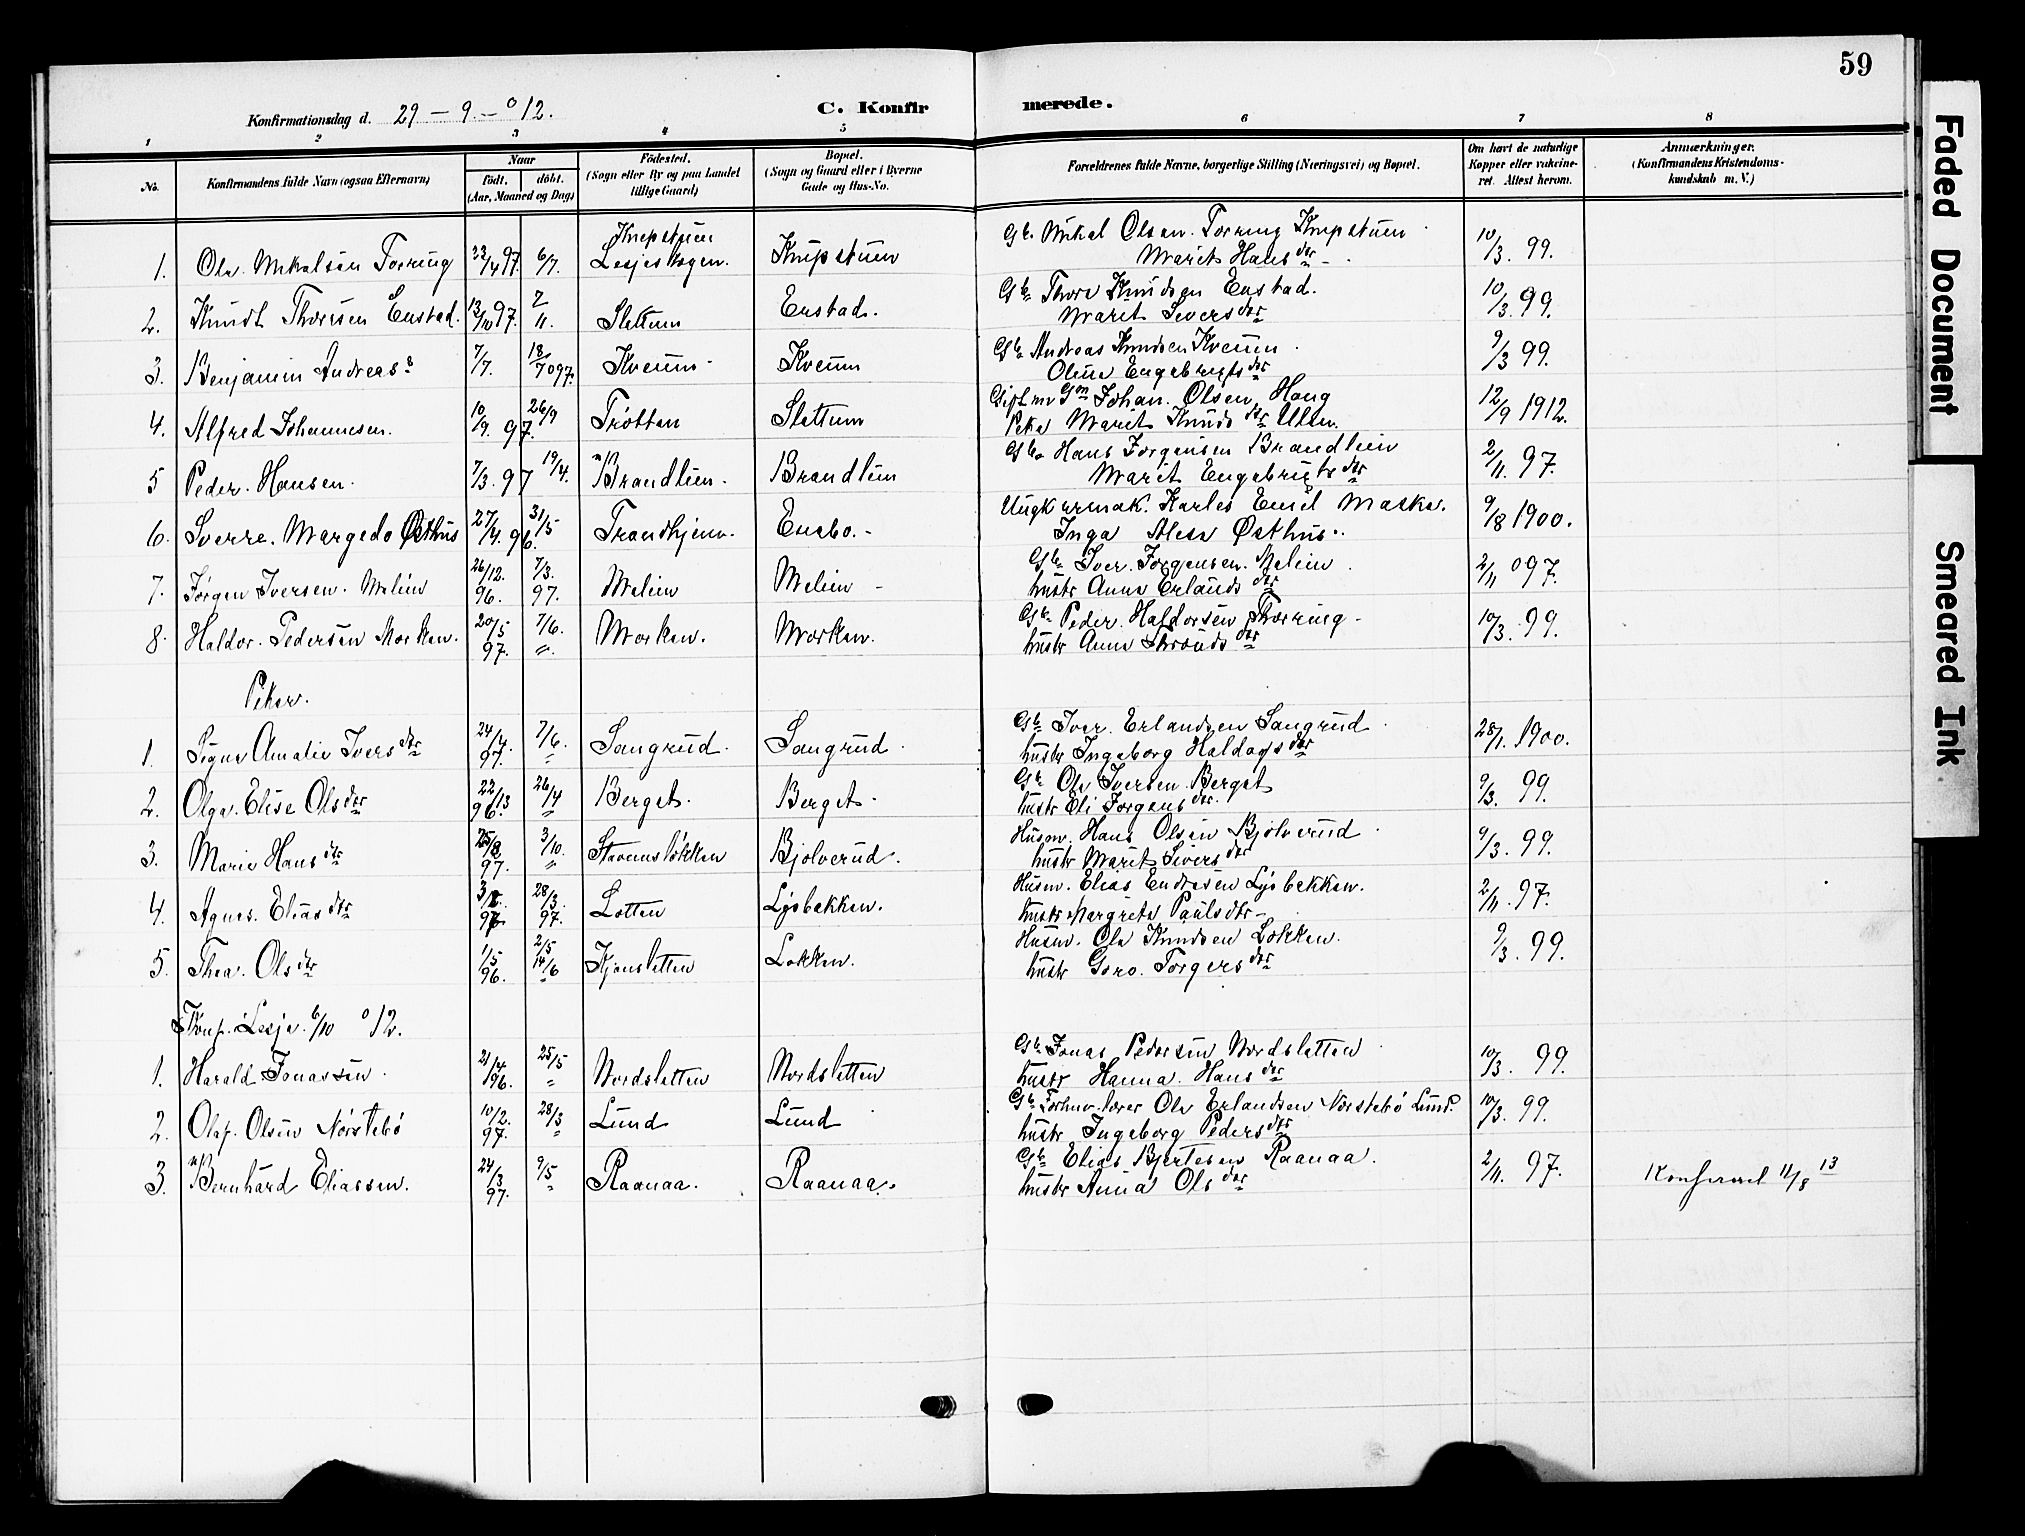 59
Konfirmationsdag d. 29 – 9. – 012.
C. Konfir merede.
1 2 3 4 5 6 7 8
No. Konfirmandens fulde Navn (ogsaa Efternavn) Naar födt. döbt. (Aar, Maaned og Dag)
Födested. (Sogn eller By og paa Landet tillige Gaard)
Bopæl. (Sogn og Gaard eller i Byerne Gade og Hus-No.
Forældrenes fulde Navne, borgerlige Stilling (Næringsvei) og Bopæl.
Om havt de naturlige Kopper eller vakcineret. Attest herom.
Anmærkninger. (Konfirmandens Kristendomskundskab m. V.)
1. Ole Mikalsen Torring 22/4 97. 6/7. Knipstuen Lesjeskogen. Knipstuen Gb. Mikal Olsen Torring Knipstuen Marit Hans dtr 10/3. 99.
2. Knudt Thoresen Enstad. 13/10 97. 2/11. Slettum Enstad. Gb. Thore Knudsen Enstad. Marit Sivers dtr 10/3. 99.
3. Benjamin Andreass 7/7. 18/7 097. Kveum Kveum Gb. Andreas Knudsen Kveum Oline Engebrigts dtr 9/3 99.
4. Alfred Johannesen. 10/9. 97. 26/9 Trøtten Slettum Gift m Gm Johan. Olsen Haug Peke Marit Knuds dtr Ulen. 12/9 1912.
5 Peder. Hansen. 7/3. 97 19/4. Brandlien. Brandlien Gb. Hans Jorgensen Brandlien Marit Engebrigts dtr 2/11. 97.
6. Sverre. Margedo Østhus 27/4. 96. 31/5 Trondhjem. Enebo. Ungk urmak. Karles Emil Maske. Inga Alesa Østhus. 9/8 1900.
7. Jørgen Iversen. Melien 26/12. 96. 7/3. 97. Melien Melien Gb. Iver. Jørgensen. Melien hustr Anne Erlands dtr 2/11 097.
8. Haldor. Pedersen Morken. 20/5 97. 7/6. " Morken. Morken. Gb. Peder. Haldorsen Thorring hustr Anne Thronds dtr 10/3. 99.
Piker.
1. Signe Amalie Ivers dtr 24/4. 97. 7/6. " Sangrud. Sangrud. Gb. Iver. Erlandsen Sangrud hustr Ingeborg Haldogs dtr 28/1. 1900.
2. Olga. Elise Ols dtr 22/13 96. 26/4 " Berget. Berget. Gb. Ole Iversen Berget hustr Eli Jorgens dtr. 9/3. 99.
3. Marie Hans dtr 25/8 97. 3/10. " Stavemsløkken Bjolverud. Husm. Hans Olsen Bjolverud hustr Marit Sivers dtr 9/3. 99.
4. Agnes. Elias dtr 97 28/3. 97. Lotten Lysbakken. Husm. Elias Endresen Lysbakken. hustr Margrete Pauls dtr 2/11. 97.
5. Thea. Ols dtr 1/5 96. 2/5 14/6 Kjonsletten Lokken. Husm. Ole Knudsen Lokken. hustr Goro. Torgers dtr 9/3. 99.
Konf. Lesje. 6/10 012.
1. Harald Jonassen 21/4 96. 25/5 " Nordsletten Nordsletten Gb. Jonas Pedersen Nordsletten hustr Hanna. Hans dtr 10/3. 99.
2. Olaf. Olsen Nörstebö 10/2. 97. 28/3 " Lund Lund Gb. Forhv. lærer Ole Erlandsen Nörstebö Lund. hustr Ingeborg Peders dtr 10/3. 99.
3. Bernhard Eliassen. 24/3 97. 9/5 " Raanaa. Raanaa. Gb. Elias Bjertesen Raanaa. hustr Anna Ols dtr 2/11. 97. 11/8 13
Faded Document
Smeared Ink